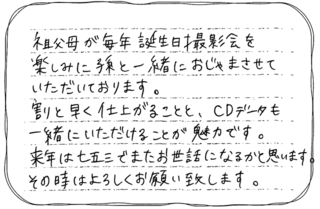 祖父母が毎年誕生日撮影会を
楽しみに孫と一緒におじゃまさせて
いただいております。
割と早く仕上がることと、CDデータも
一緒にいただけることが魅力です。
来年は七五三でまたお世話になるかと思います。
その時はよろしくお願い致します。